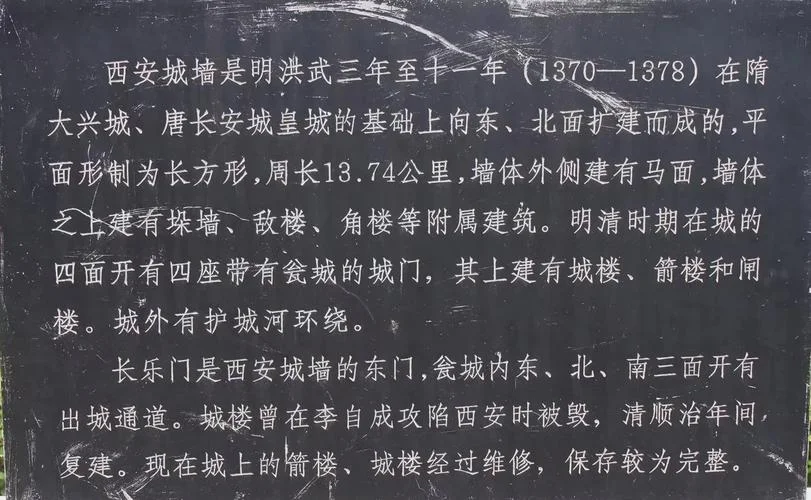 西安城墙是明洪武三年至十一年（1370—1378）在隋
大兴城、唐长安城皇城的基础上向东、北面扩建而成的,平
面形制为长方形,周长13.74公里,墙体外侧建有马面,墙体
之上建有垛墙、敌楼、角楼等附属建筑。明清时期在城的
四面开有四座带有瓮城的城门，其上建有城楼、箭楼和闸
楼。城外有护城河环绕。
长乐门是西安城墙的东门,瓮城内东、北、南三面开有
出城通道。城楼曾在李自成攻陷西安时被毁，清顺治年间
复建。现在城上的箭楼、城楼经过维修，保存较为完整。